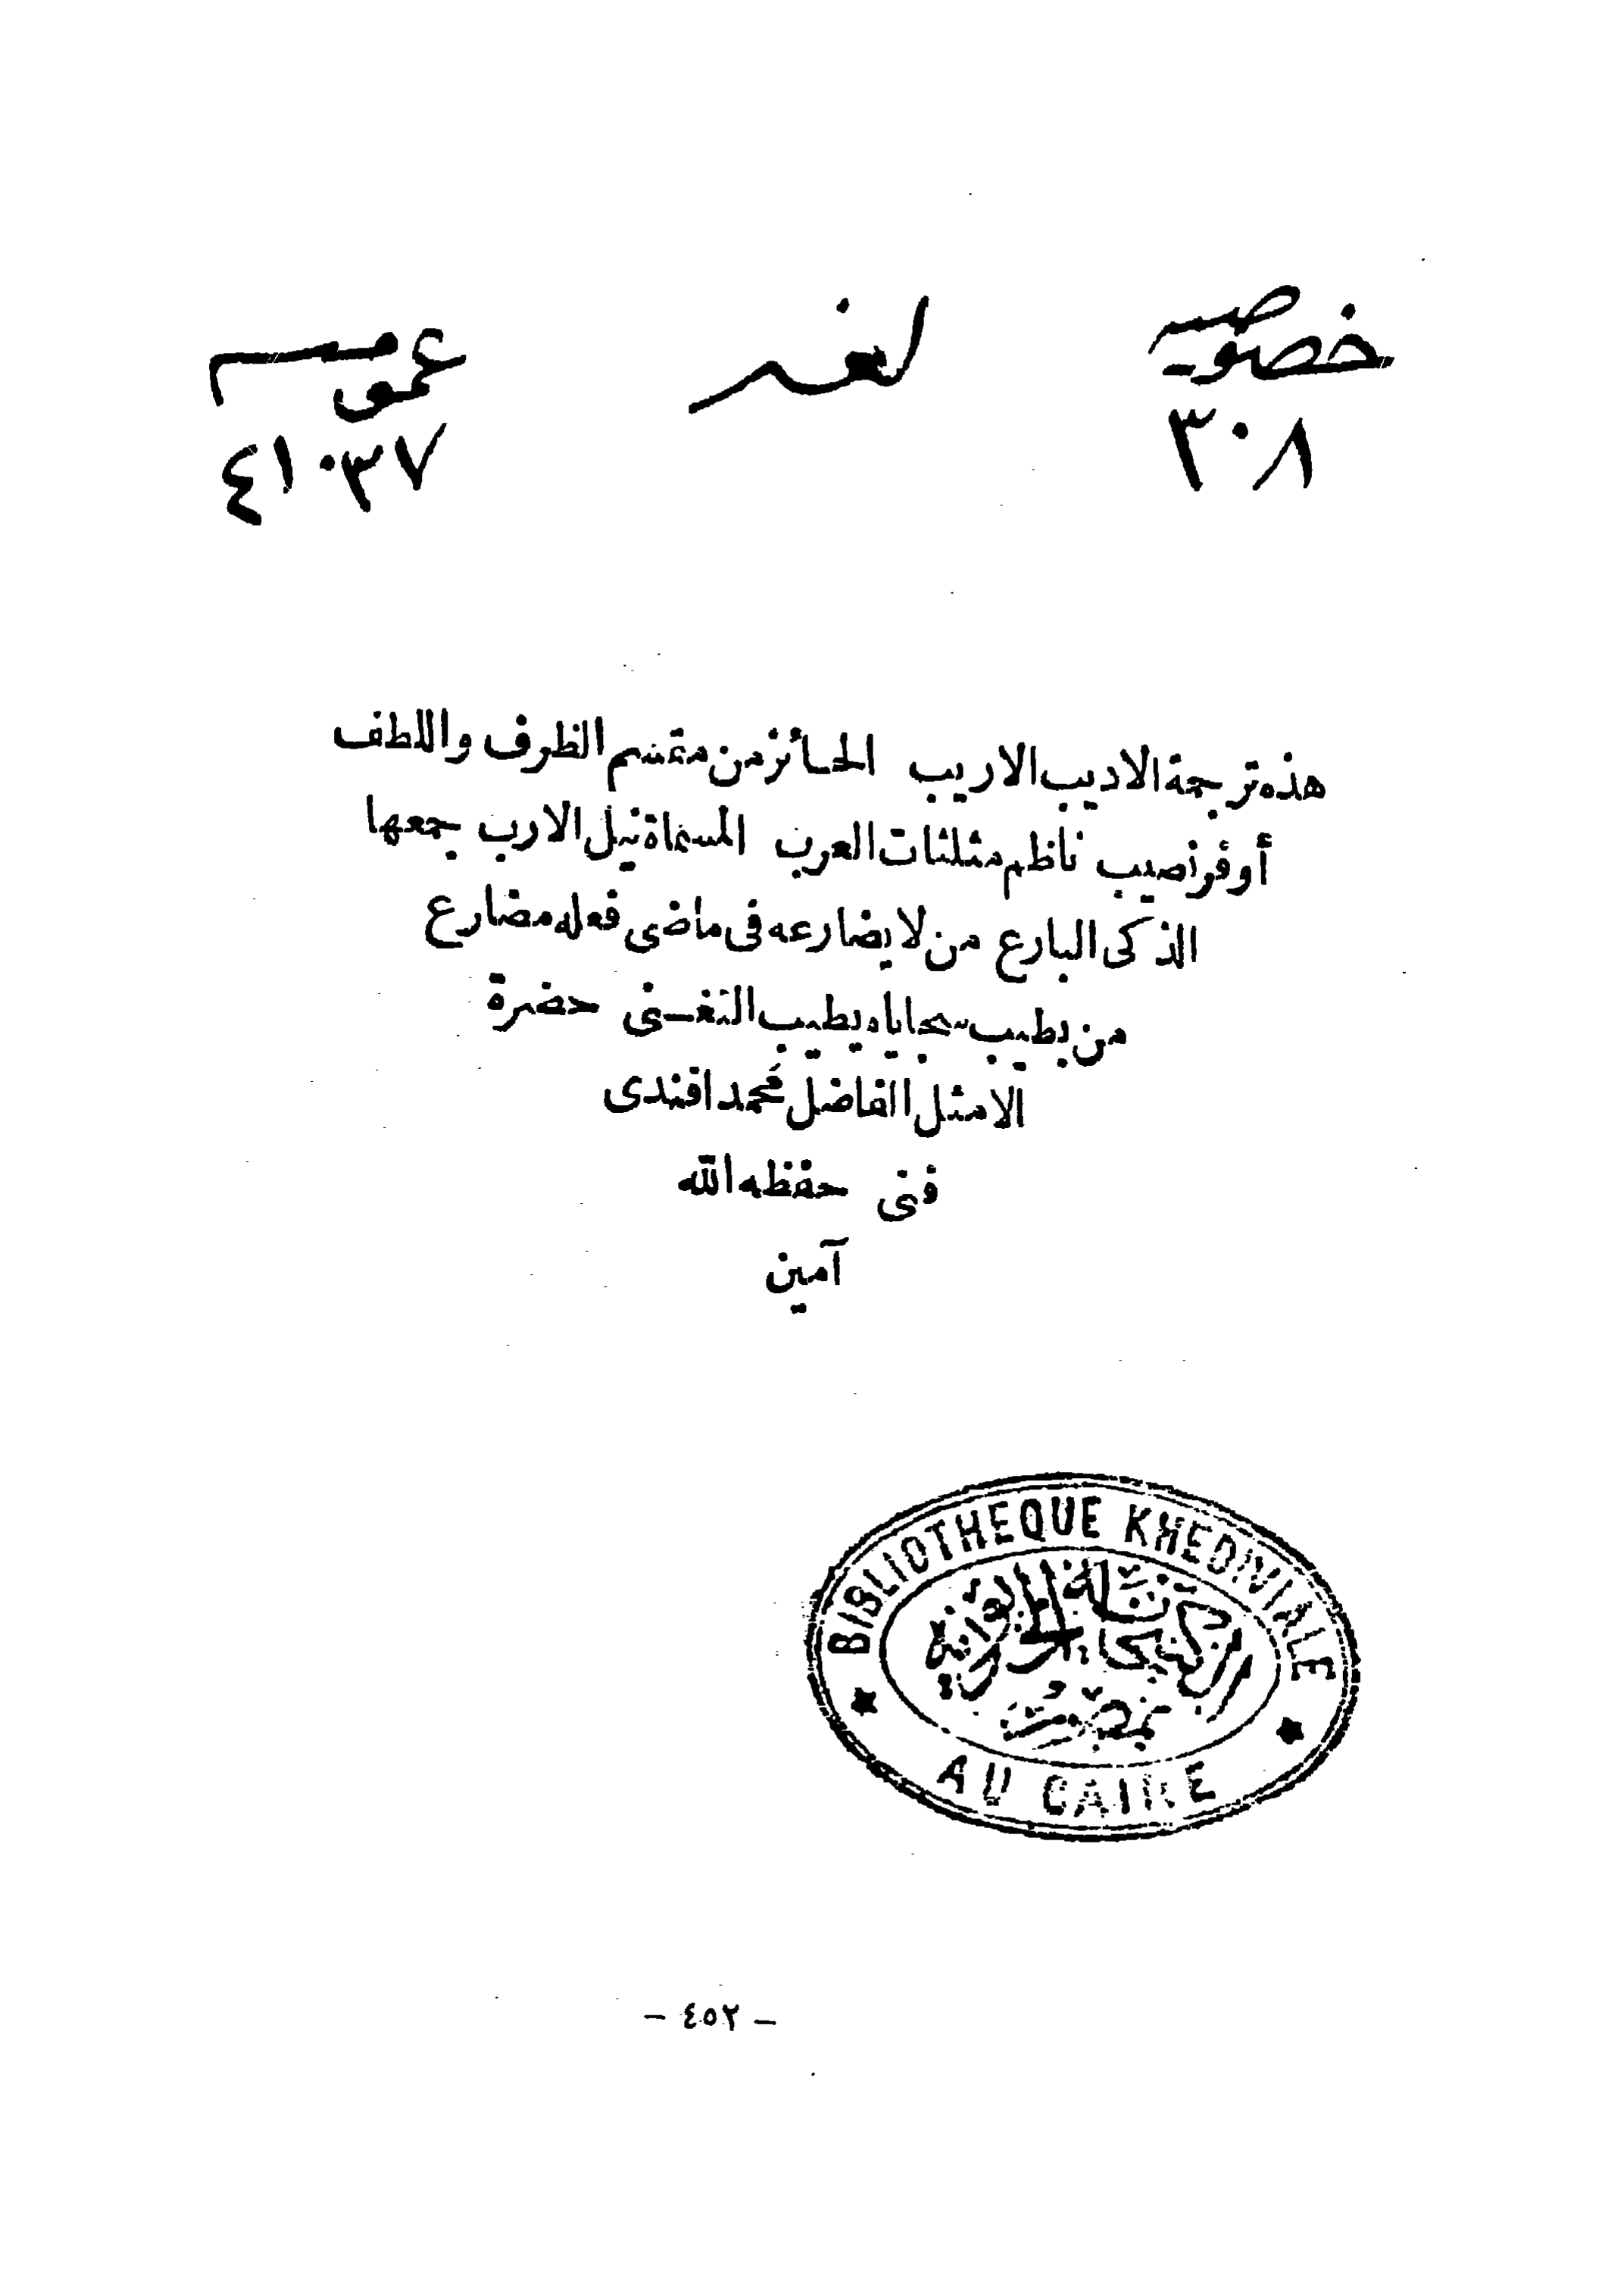 خصوصية
٣٠٨
لغة
عمومية
٤١٠٣٧
هذه ترجمة الاديب الاريب الحائز من متقسم الظرف واللطف
أوفر نصيب ناظم مثلثات العرب المسماة نيل الارب جمعها
الذكى البارع من لا يضارعه فى ماضى فعله مضارع
من بطيب سجاياه يطيب التغنى حضرة
الامثل الفاضل محمد افندى
فنى حفظه الله
آمين
BIBLIOTHEQUE KHEDIVIALE
الكتبخانة الخديوية
بمصر
AU CAIRE
– ٤٥٢ –